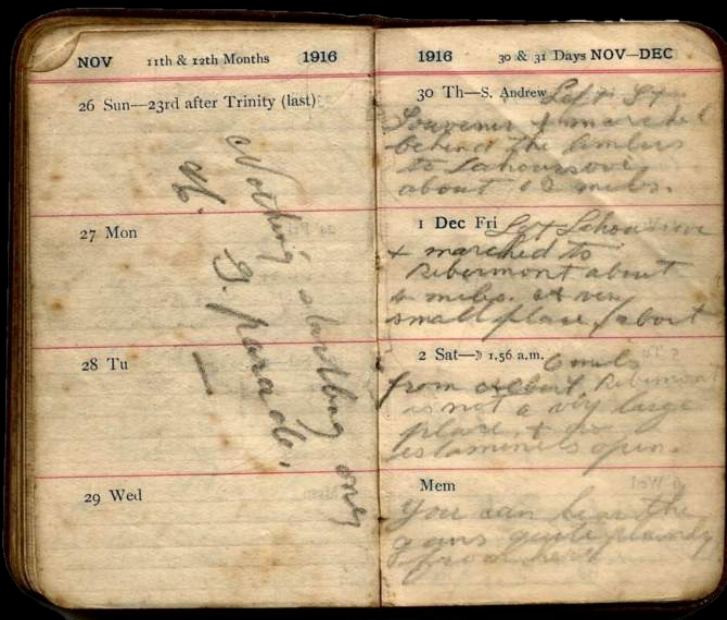 NOV 11th & 12th Months 1916
26 Sun—23rd after Trinity (last)
27 Mon
28 Tu
29 Wed
Nothing startling only
K. G. parade.
1916 30 & 31 Days NOV—DEC
30 Th—S. Andrew Left St
Souvenir & marched
behind the limbers
to Lahoussoye
about 12 miles.
1 Dec Fri Left Lahoussoye
+ marched to
Ribermont about
miles. a very
small place, about
2 Sat—☽ 1.56 a.m. 6 miles
from Albert. Ribermont
is not a very large
place, + no
estaminets open.
Mem
You can hear the
guns quite plainly
from here